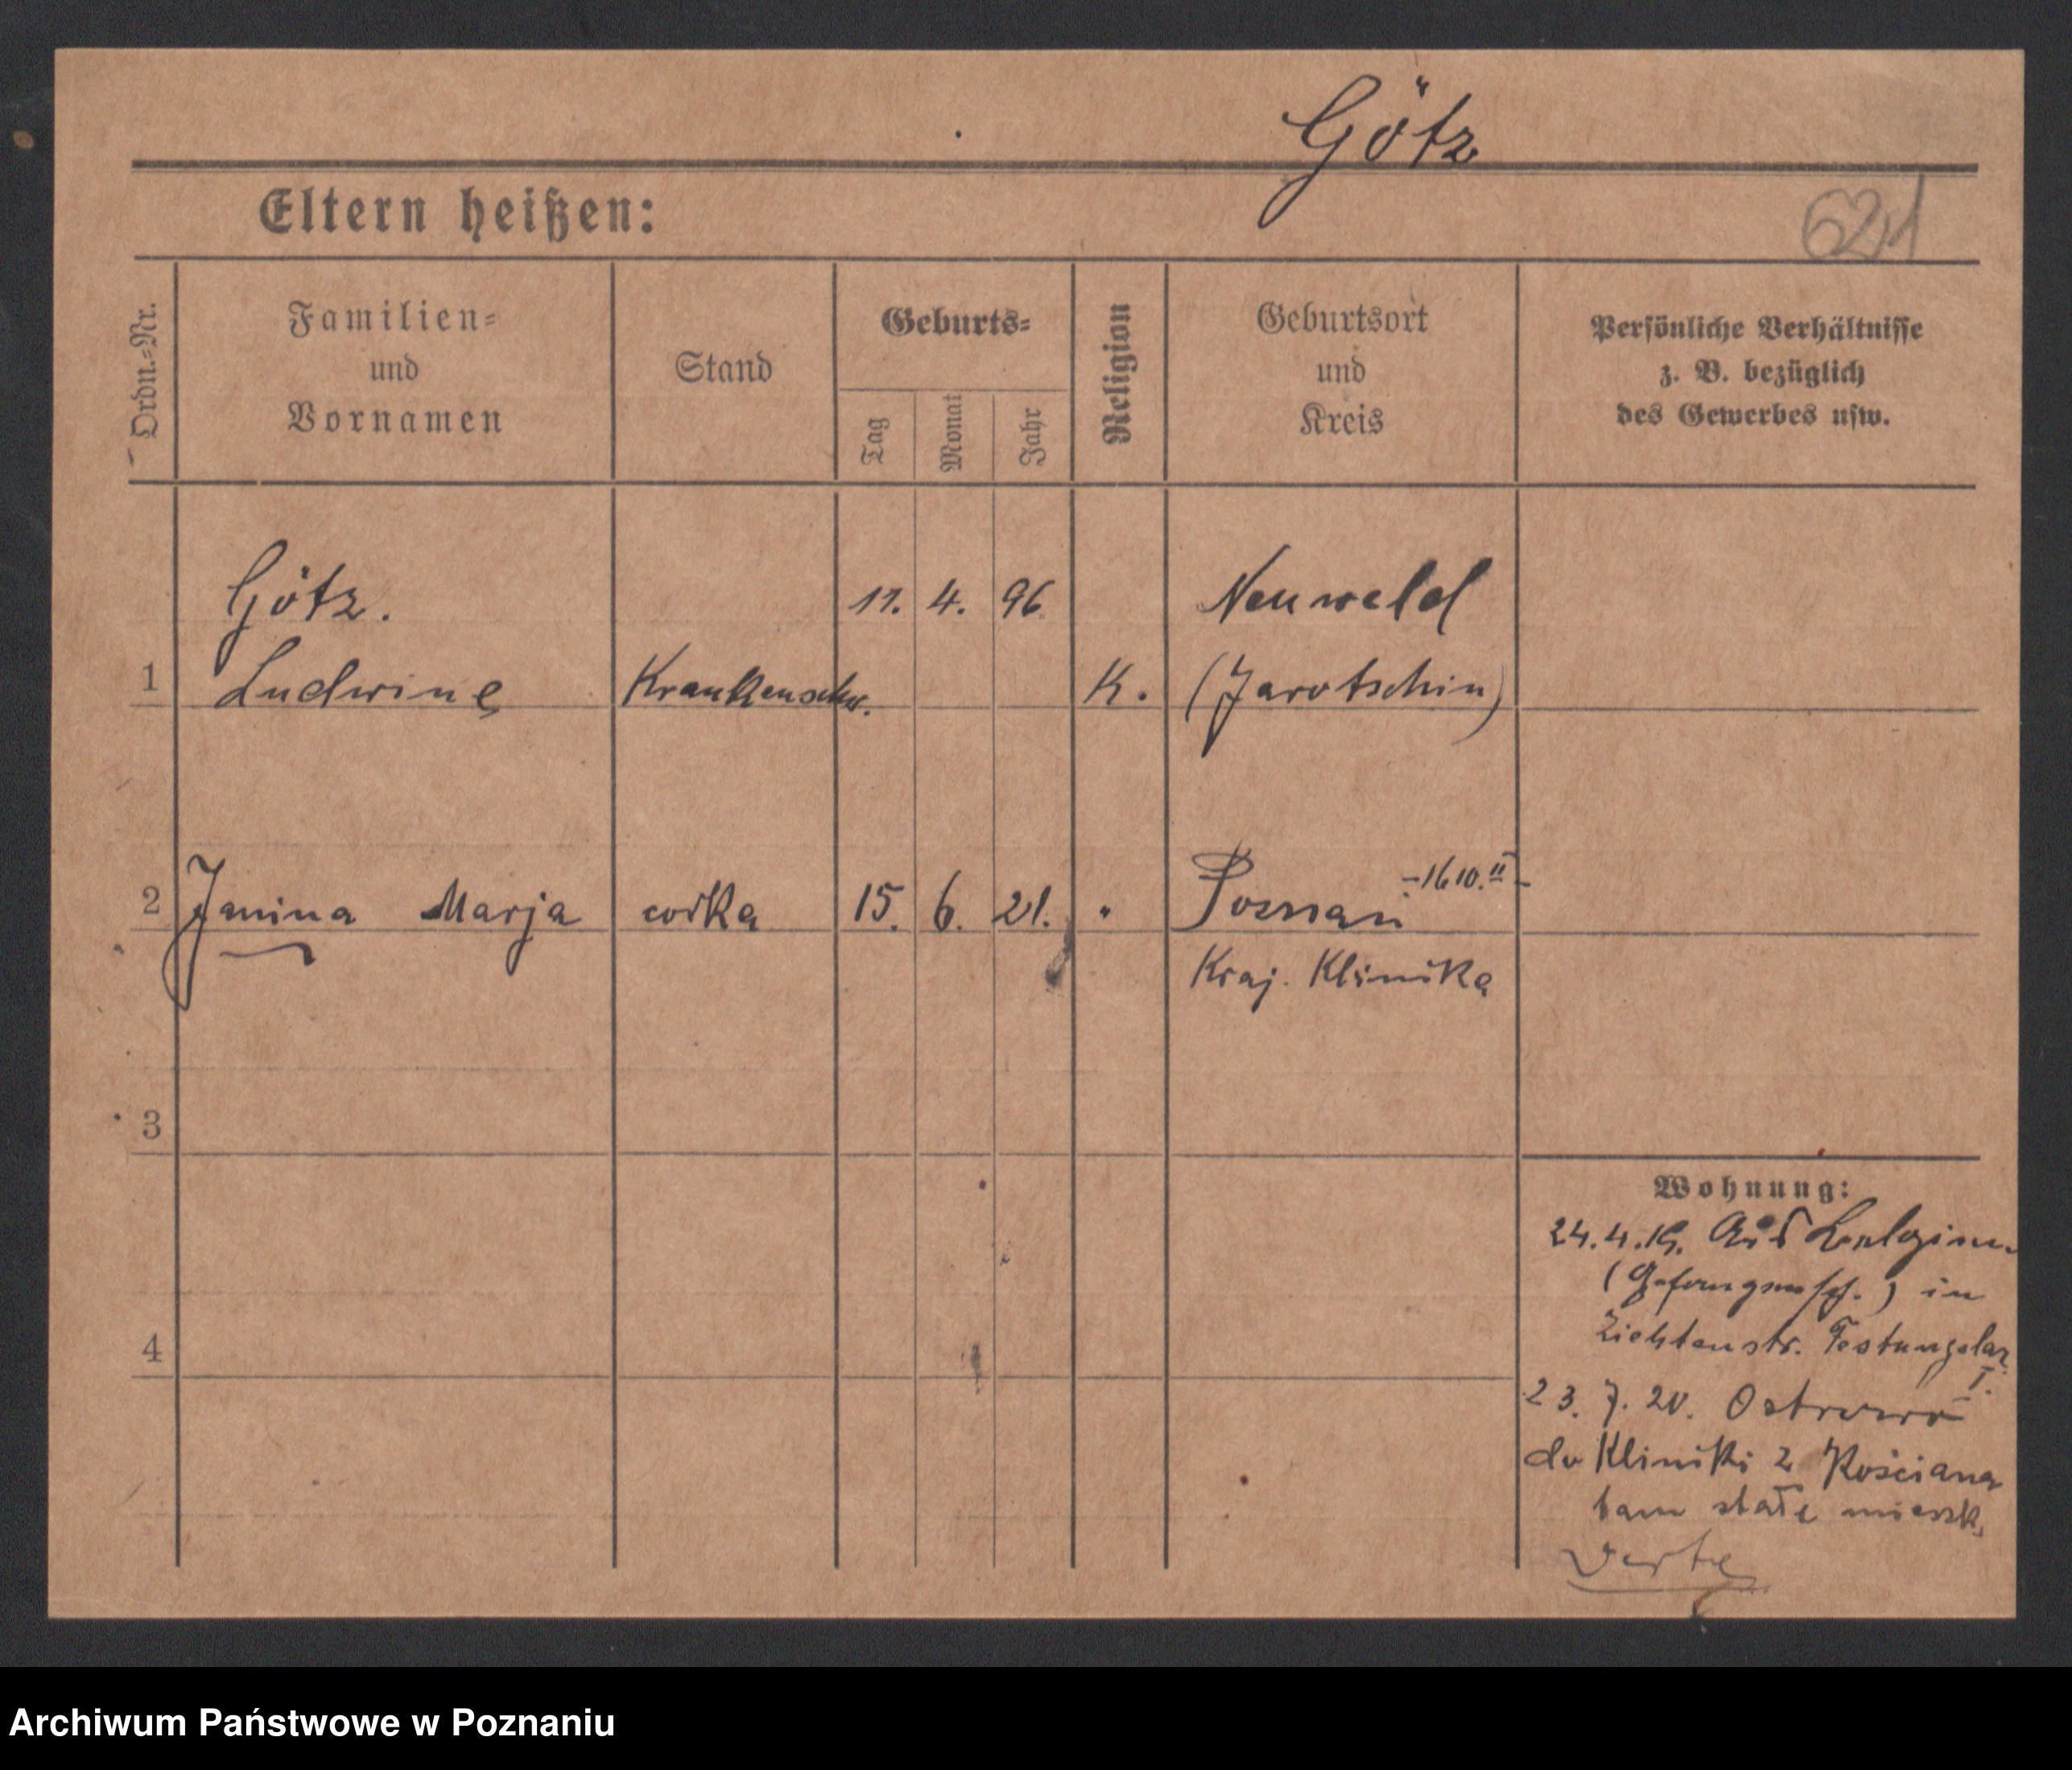 Götz
Eltern heißen:
621
Ordn.-Nr.
Familien-
und
Vornamen
Stand
Geburts-
Tag
Monat
Jahr
Religion
Geburtsort
und
Kreis
Persönliche Verhältnisse
z. B. bezüglich
des Gewerbes usw.
Götz.
11. 4. 96
Neuweld
1 Ludwine Krankenschw. K. (Jarotschin)
2 Janina Marja córka 15. 6. 21. " Poznań -1610.II-
Kraj. Klinika
3
4
Wohnung:
24.4.19. Aus Belgien
(Gefangensch.) in
Lichtenstr. Festungslaz.
I.
23. 7. 20. Ostrowo
do Kliniki z Kościana
tam stałe mieszk.
verte
Archiwum Państwowe w Poznaniu